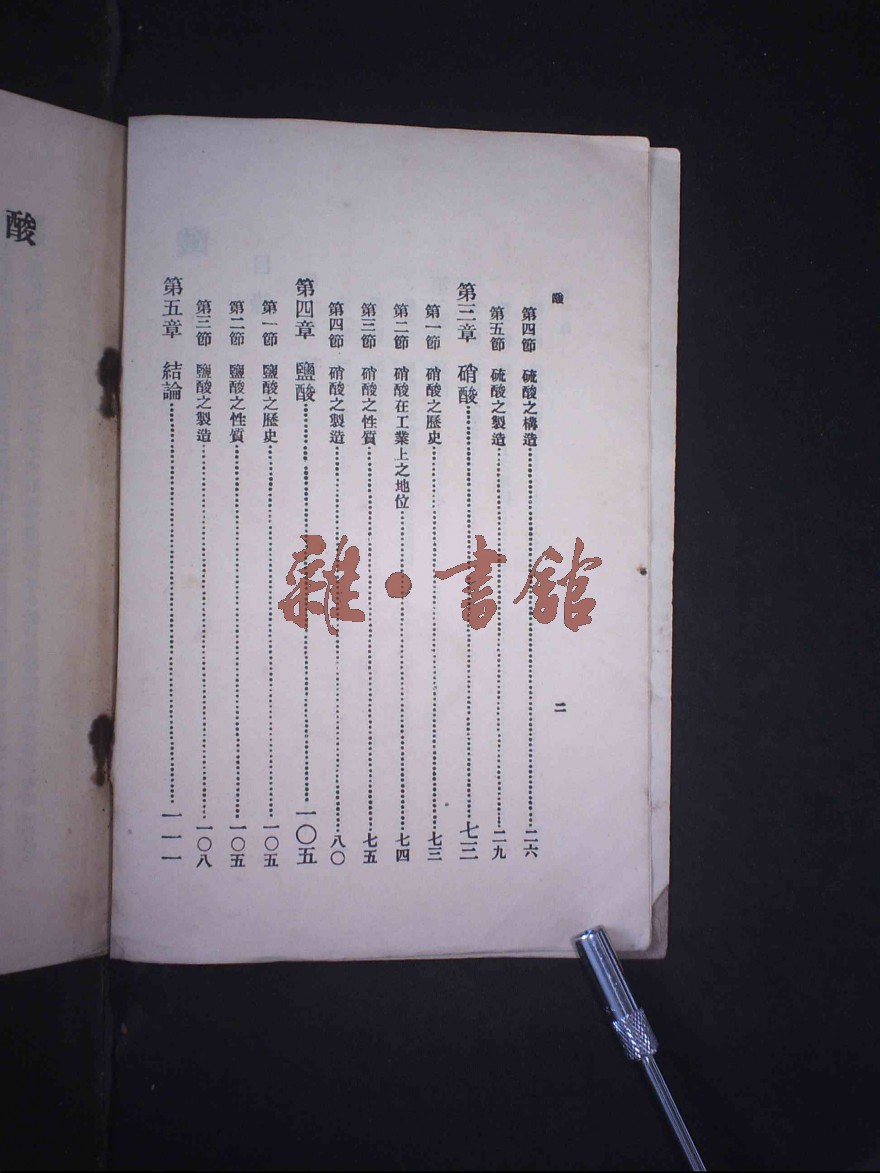 酸
第四節　硫酸之構造………二六
第五節　硫酸之製造………二九
第三章　硝酸………七三
第一節　硝酸之歷史………七三
第二節　硝酸在工業上之地位………七四
第三節　硝酸之性質………七五
第四節　硝酸之製造………八〇
第四章　鹽酸………一〇五
第一節　鹽酸之歷史………一〇五
第二節　鹽酸之性質………一〇五
第三節　鹽酸之製造………一〇八
第五章　結論………一一一
二
酸
雜・書館